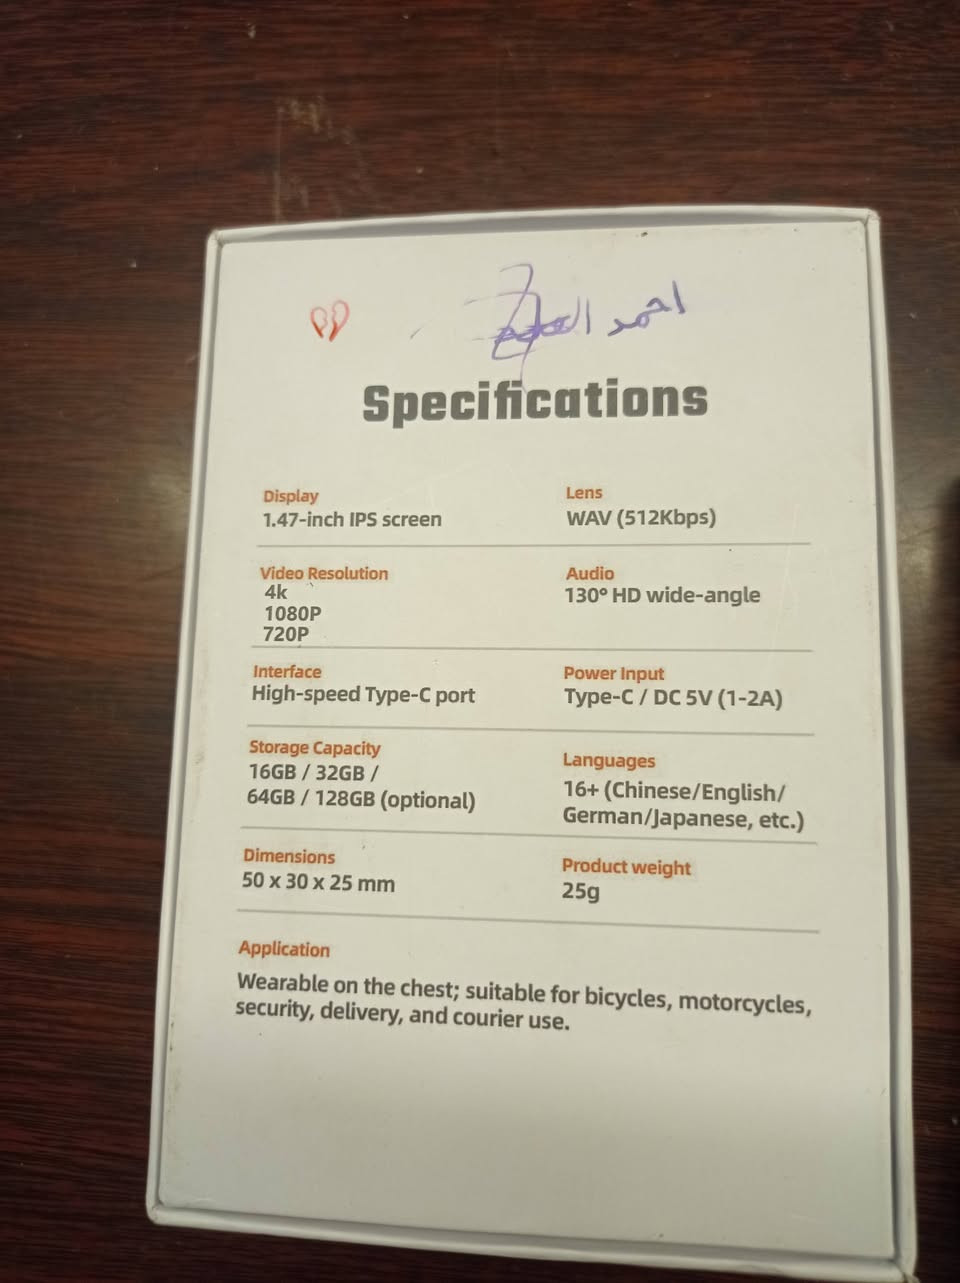 احمد
Specifications
Display
1.47-inch IPS screen
Lens
WAV (512Kbps)
Video Resolution
4k
1080P
720P
Audio
130° HD wide-angle
Interface
High-speed Type-C port
Power Input
Type-C / DC 5V (1-2A)
Storage Capacity
16GB / 32GB /
64GB / 128GB (optional)
Languages
16+ (Chinese/English/
German/Japanese, etc.)
Dimensions
50 x 30 x 25 mm
Product weight
25g
Application
Wearable on the chest; suitable for bicycles, motorcycles,
security, delivery, and courier use.